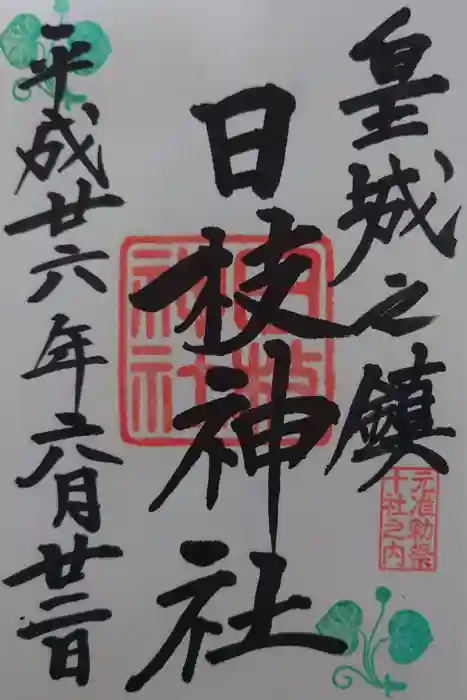 皇城之鎮
日枝神社
平成廿六年六月廿二日
日枝
神社
元准勅祭
十社之内